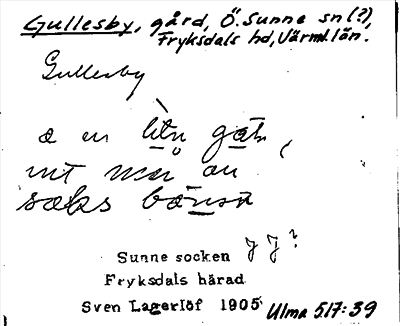 Gullesby, gård, Ö. Sunne sn (?),
Fryksdals hd, Värml. län.
Gullesby
a en litn găt
int mer än
saks bönsa
Sunne socken JJ?
Fryksdals härad
Sven Lagerlöf 1905
Ulma 517:39